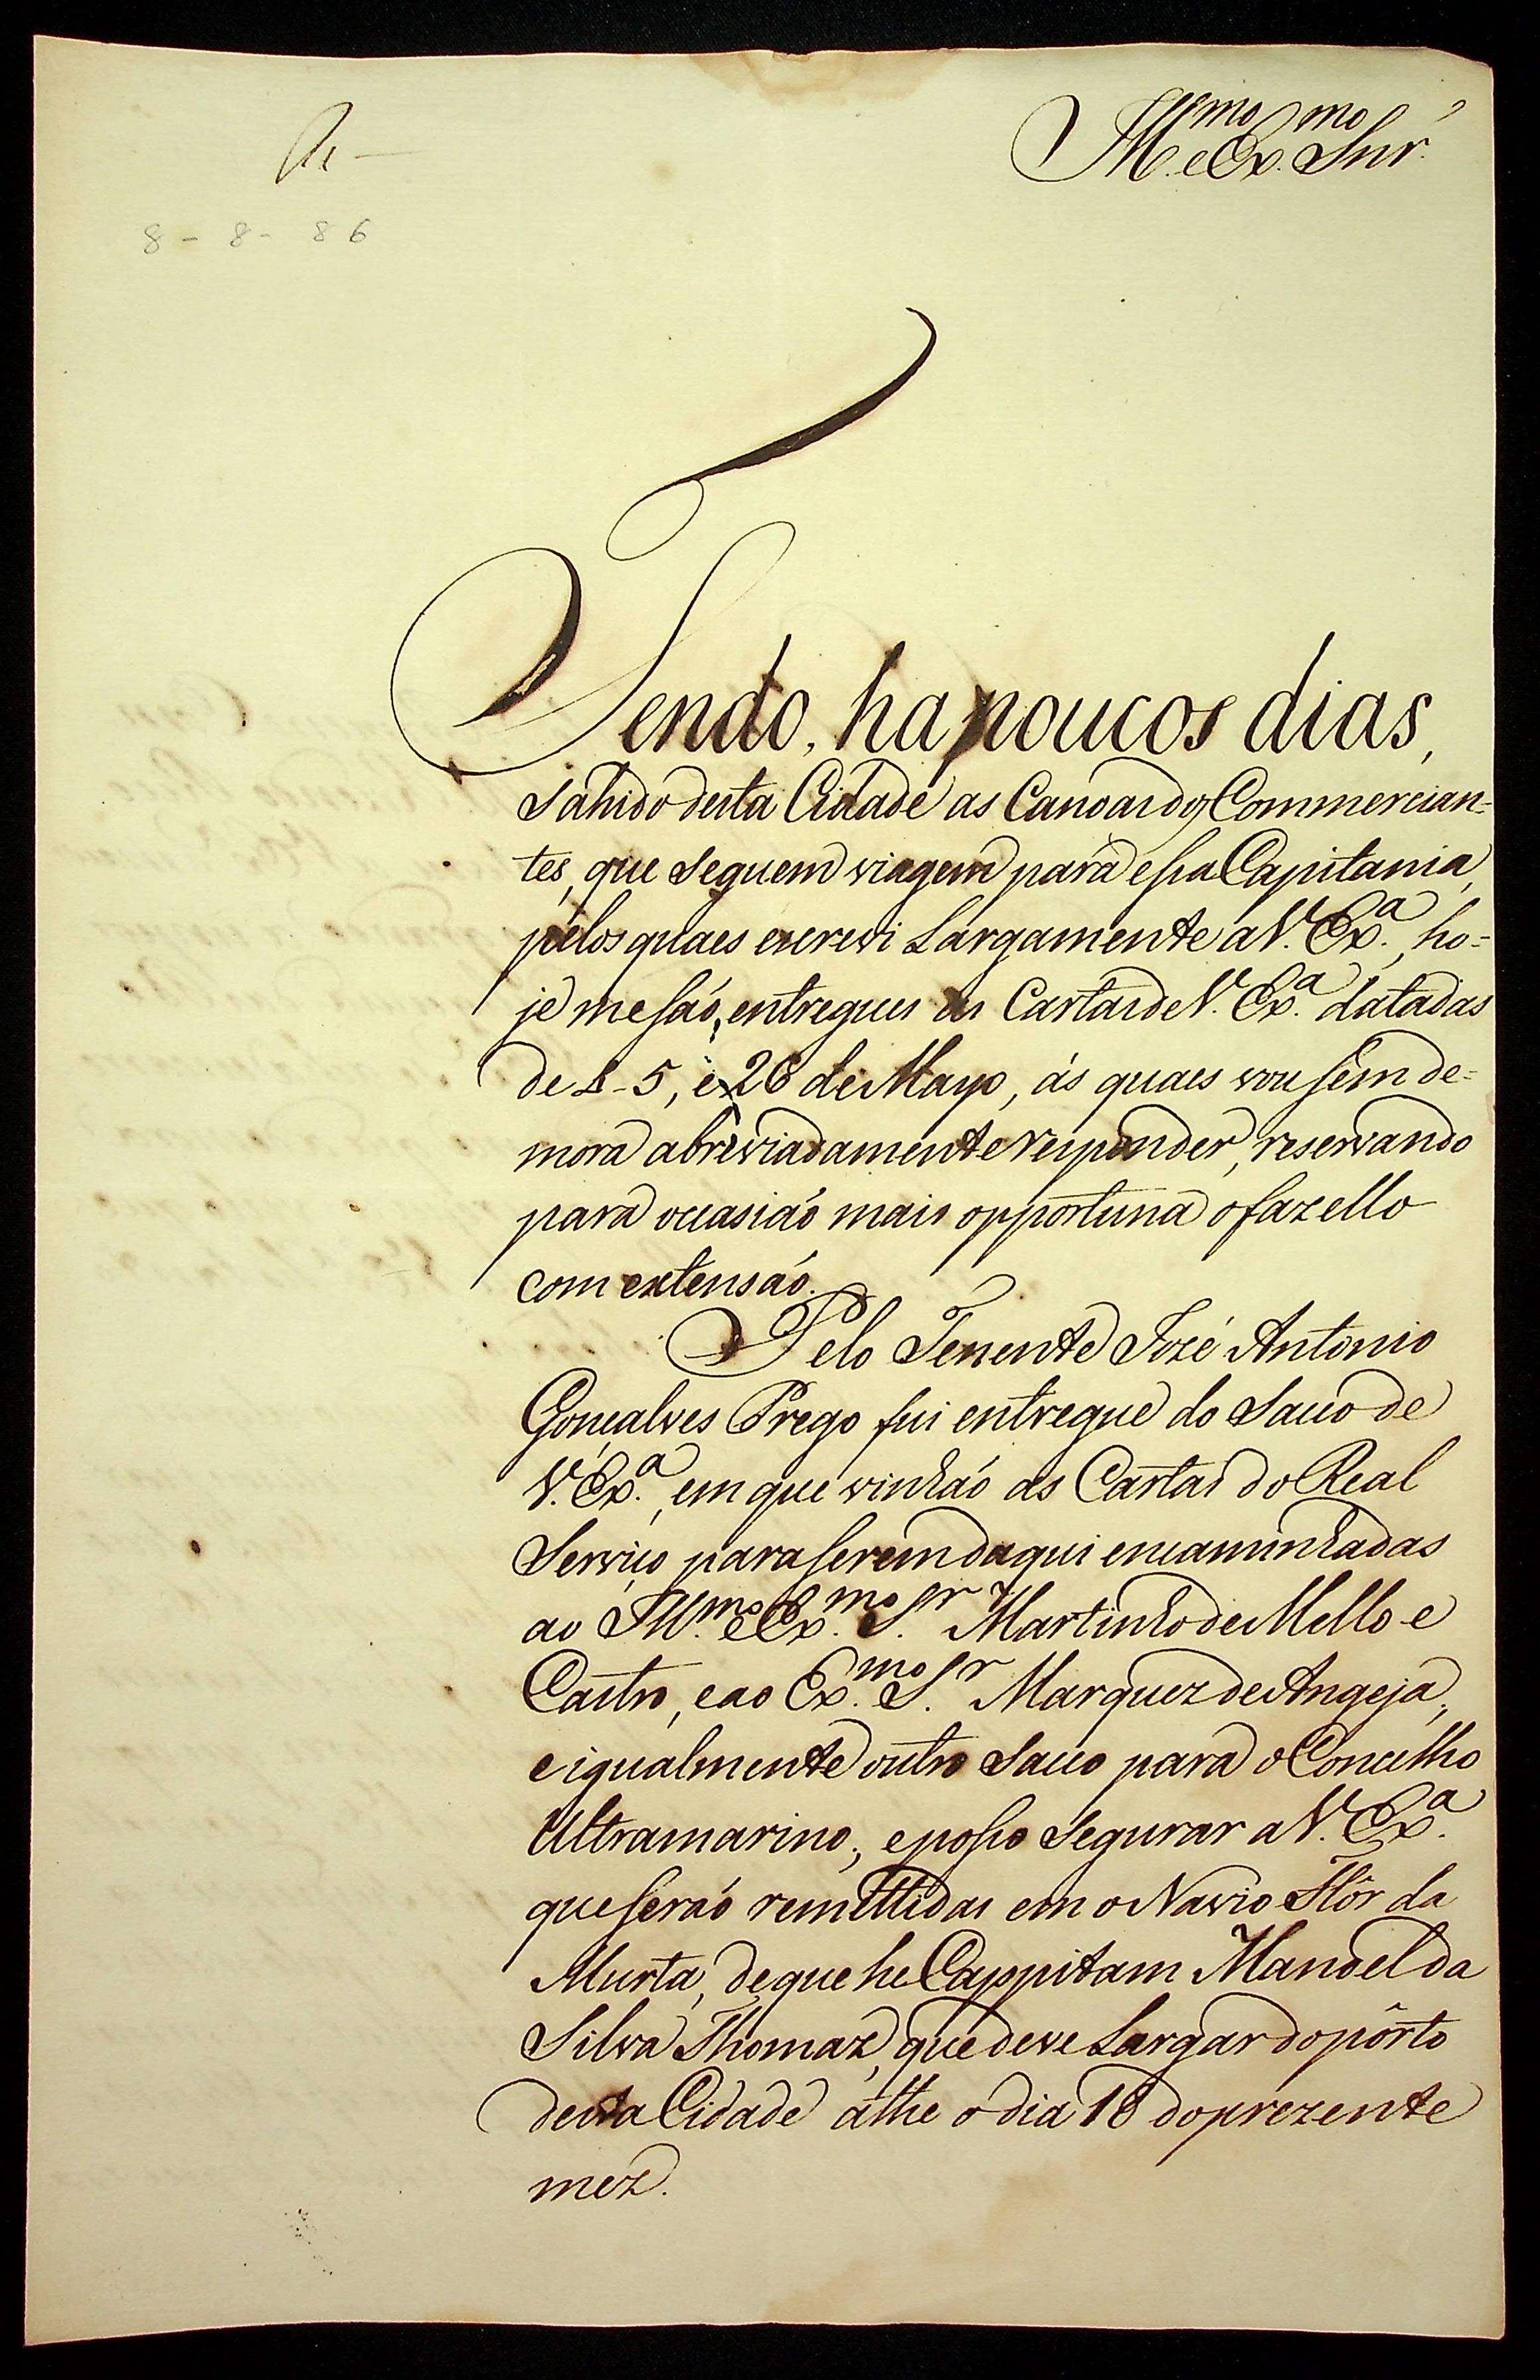 Ill.mo e Ex.mo Snr'
8 - 8 - 86
Tendo, ha poucos dias,
sahido desta Cidade as Canoas dos Commercian=
tes, que seguem viagem para essa Capitania,
pelos quaes escrevi Largamente a V. Ex.a, ho=
je me são, entregues as Cartas de V. Ex.a datadas
de 5, e 26 de Mayo, ás quaes vou sem de=
mora abreviadamente responder, reservando
para occasião mais opportuna o fazello
com extensão.
Pelo Tenente Jozé Antonio
Gonçalves Prego fui entregue do Sacco de
V. Ex.a, em que vinhão as Cartas do Real
Serviço para serem daqui encaminhadas
ao Ill.mo e Ex.mo S.r Martinho de Mello e
Castro, e ao Ex.mo S.r Marquez de Angeja,
e igualmente outro Sacco para o Concelho
Ultramarino; e posso segurar a V. Ex.a
que serão remettidas em o Navio Flôr da
Murta, de que he Cappitam Manoel da
Silva Thomaz, que deve Largar do pôrto
desta Cidade athe o dia 18 do prezente
mez.